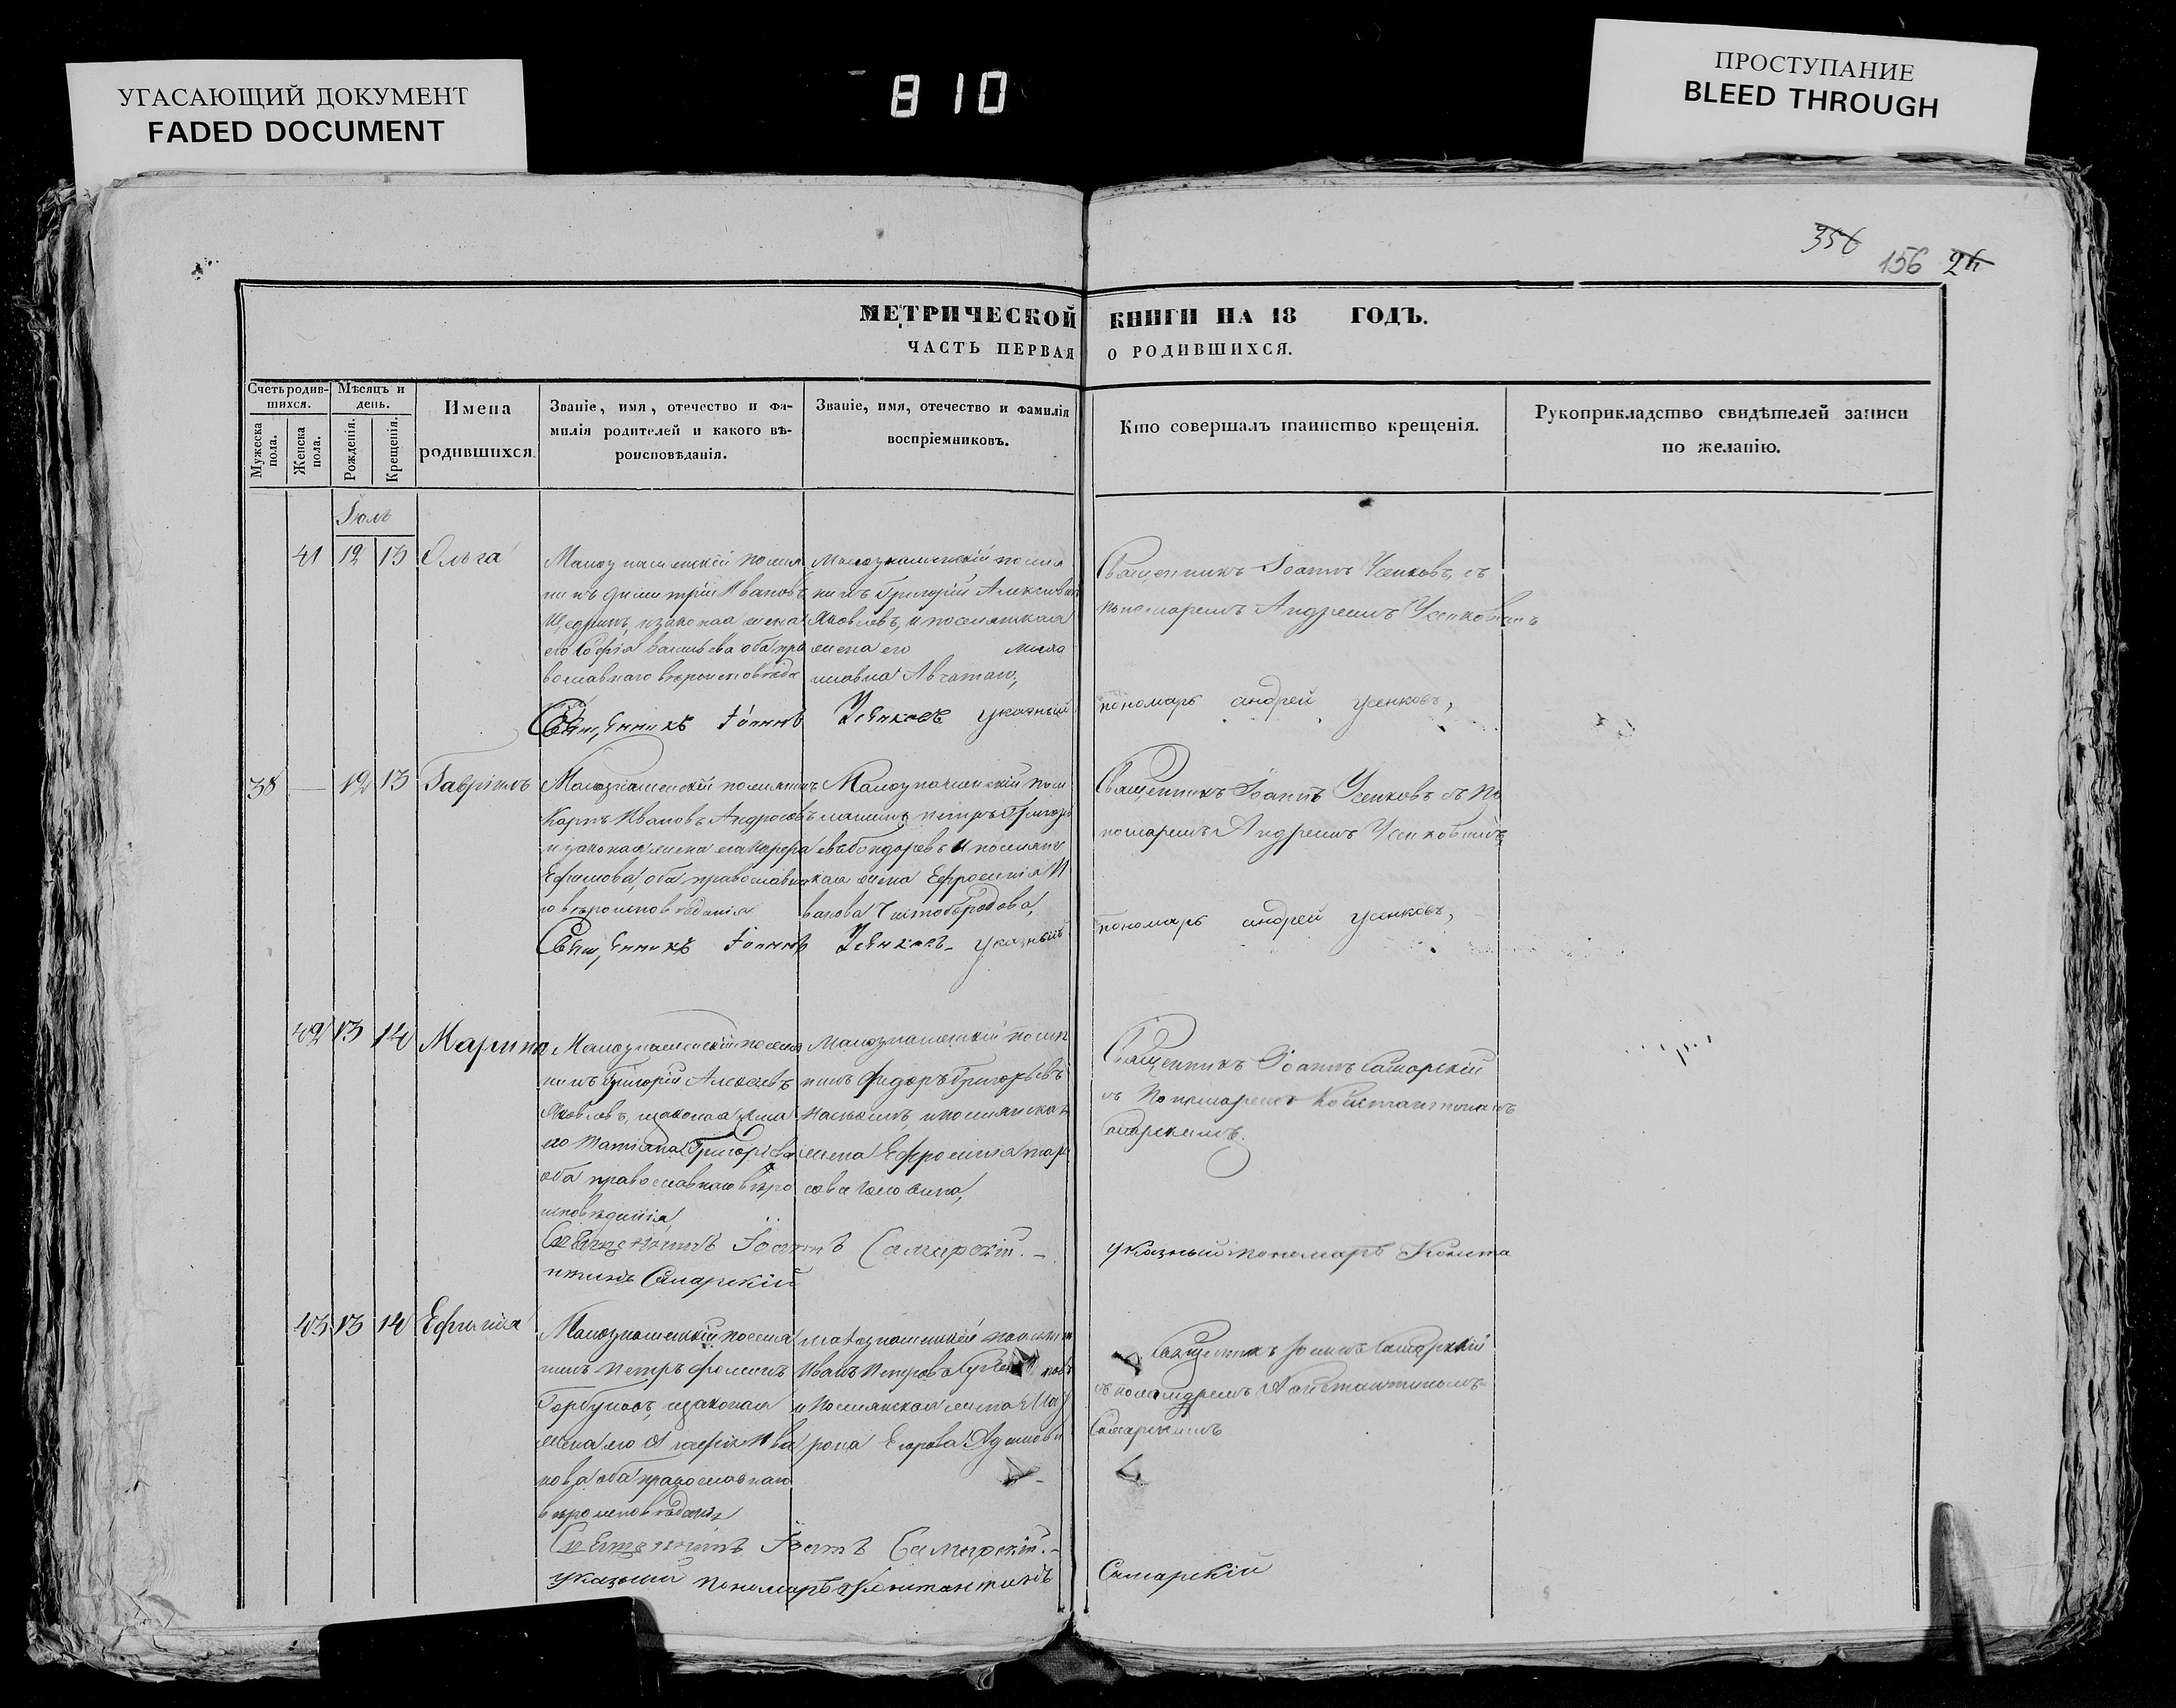 УГАСАЮЩИЙ ДОКУМЕНТ
FADED DOCUMENT
810
ПРОСТУПАНИЕ
BLEED THROUGH
356
156 24
МЕТРИЧЕСКОЙ КНИГИ НА 18 ГОДЪ.
ЧАСТЬ ПЕРВАЯ О РОДИВШИХСЯ.
Счетъ родив-
шихся.
Мужеска
пола.
Женска
пола.
Мѣсяцъ и
день.
Рожденія.
Крещенія.
Имена
родившихся.
Званіе, имя, отечество и фа-
милія родителей и какого вѣ-
роисповѣданія.
Званіе, имя, отечество и фамилія
воспріемниковъ.
Кто совершалъ таинство крещенія.
Рукоприкладство свидѣтелей записи
по желанію.
Іюль
41 12 13 Ольга
Малознаменскій поселя
нинъ Димитрій Ивановъ
Щедринъ, изаконая жена
его Софія Васильева оба пра
вославнаго вѣроисповѣда
Малознаменскій поселя
нинъ Григорій Алексѣевъ
Яковлевъ, и поселянская
жена его
Священникъ Іоаннъ Усенковъ, съ
пономаремъ Андреемъ Усенковымъ
Священникъ Іоаннъ Усенковъ указный
пономарь андрей усенковъ,
38 — 12 13 Гавріилъ
Малознаменскій поселянинъ
Карпъ Ивановъ Андросовъ
и законая жена его
Ефимова, оба православна
го вѣроисповѣданія
Малознаменскій посе
лянинъ петръ Григорь
евъ бондаревъ и поселянс
кая жена Ефросинія И
ванова Чистобородова,
Священникъ Іоаннъ Усенковъ съ по
номаремъ Андреемъ Усенковымъ,
Священникъ Іоаннъ Усенковъ указный
пономарь андрей усенковъ,
42 13 14 Марина
Малознаменскій поселя
нинъ Григорій Алексѣевъ
Яковлевъ, изаконая жена
его Татіана Григоріева
оба православнаго вѣро
исповѣданія,
Малознаменскій поселя
нинъ Фидоръ Григорьевъ
и поселянская
жена Ефросинія
Священникъ Іоаннъ Самарскій
съ пономаремъ Константиномъ
Самарскимъ.
Священникъ Іоаннъ Самарскій. –
указный пономарь Конста
нтинъ Самарскій
43 13 14 Ефимія
Малознаменскій поселя
нинъ Петръ Фоминъ
Горбуновъ, изаконая
жена его Агафія Ива
нова оба православнаго
вѣроисповѣданія
малознаменскій поселянин
Иванъ Петровъ
и поселянская жена Мат
рона Егорова
Священникъ Іоаннъ Самарскій
съ пономаремъ Константиномъ
Самарскимъ
Священникъ Іоаннъ Самарскій. –
указный пономарь Константинъ
Самарскій